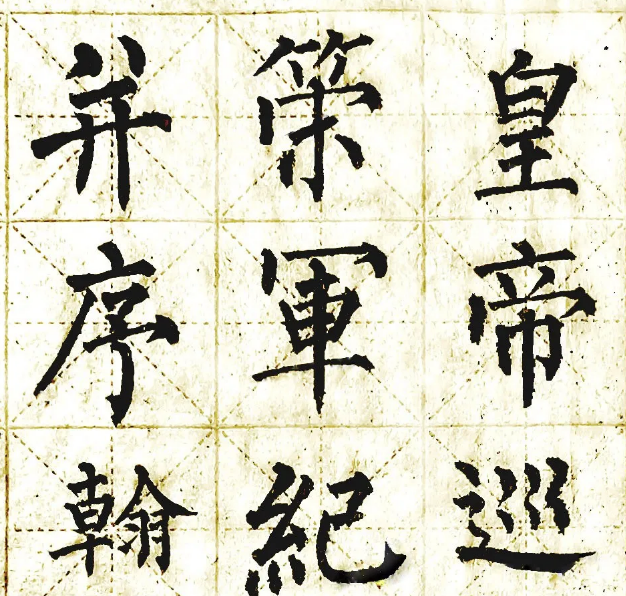 皇帝巡
策軍紀
并序翰